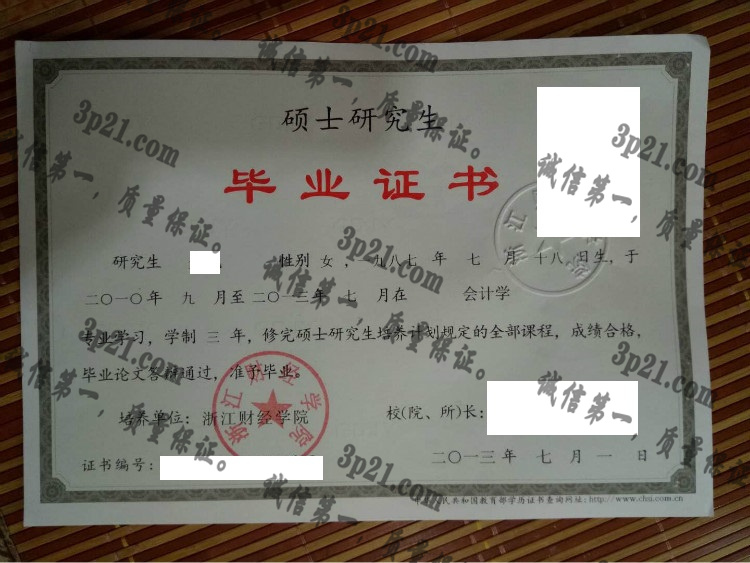 硕士研究生
毕业证书
研究生 , 性别 女 , 一九八七 年 七 月 十八 日生, 于
二〇一〇年 九 月至 二〇一三年 七 月在 会计学
专业学习, 学制 三 年, 修完硕士研究生培养计划规定的全部课程, 成绩合格,
毕业论文答辩通过, 准予毕业。
培养单位: 浙江财经学院
校(院、所)长:
证书编号:
二〇一三年 七 月 一 日
民共和国教育部学历证书查询网址:http://www.chsi.com.cn
浙江财经学院
3p21.com
诚信第一,质量保证。
3p21.com
诚信第一,质量保证。
3p21.com
诚信第一,质量保证。
3p21.com
诚信第一,质量保证。
3p21.com
诚信第一,质量保证。
3p21.com
诚信第一,质量保证。
3p21.com
诚信第一,质量保证。